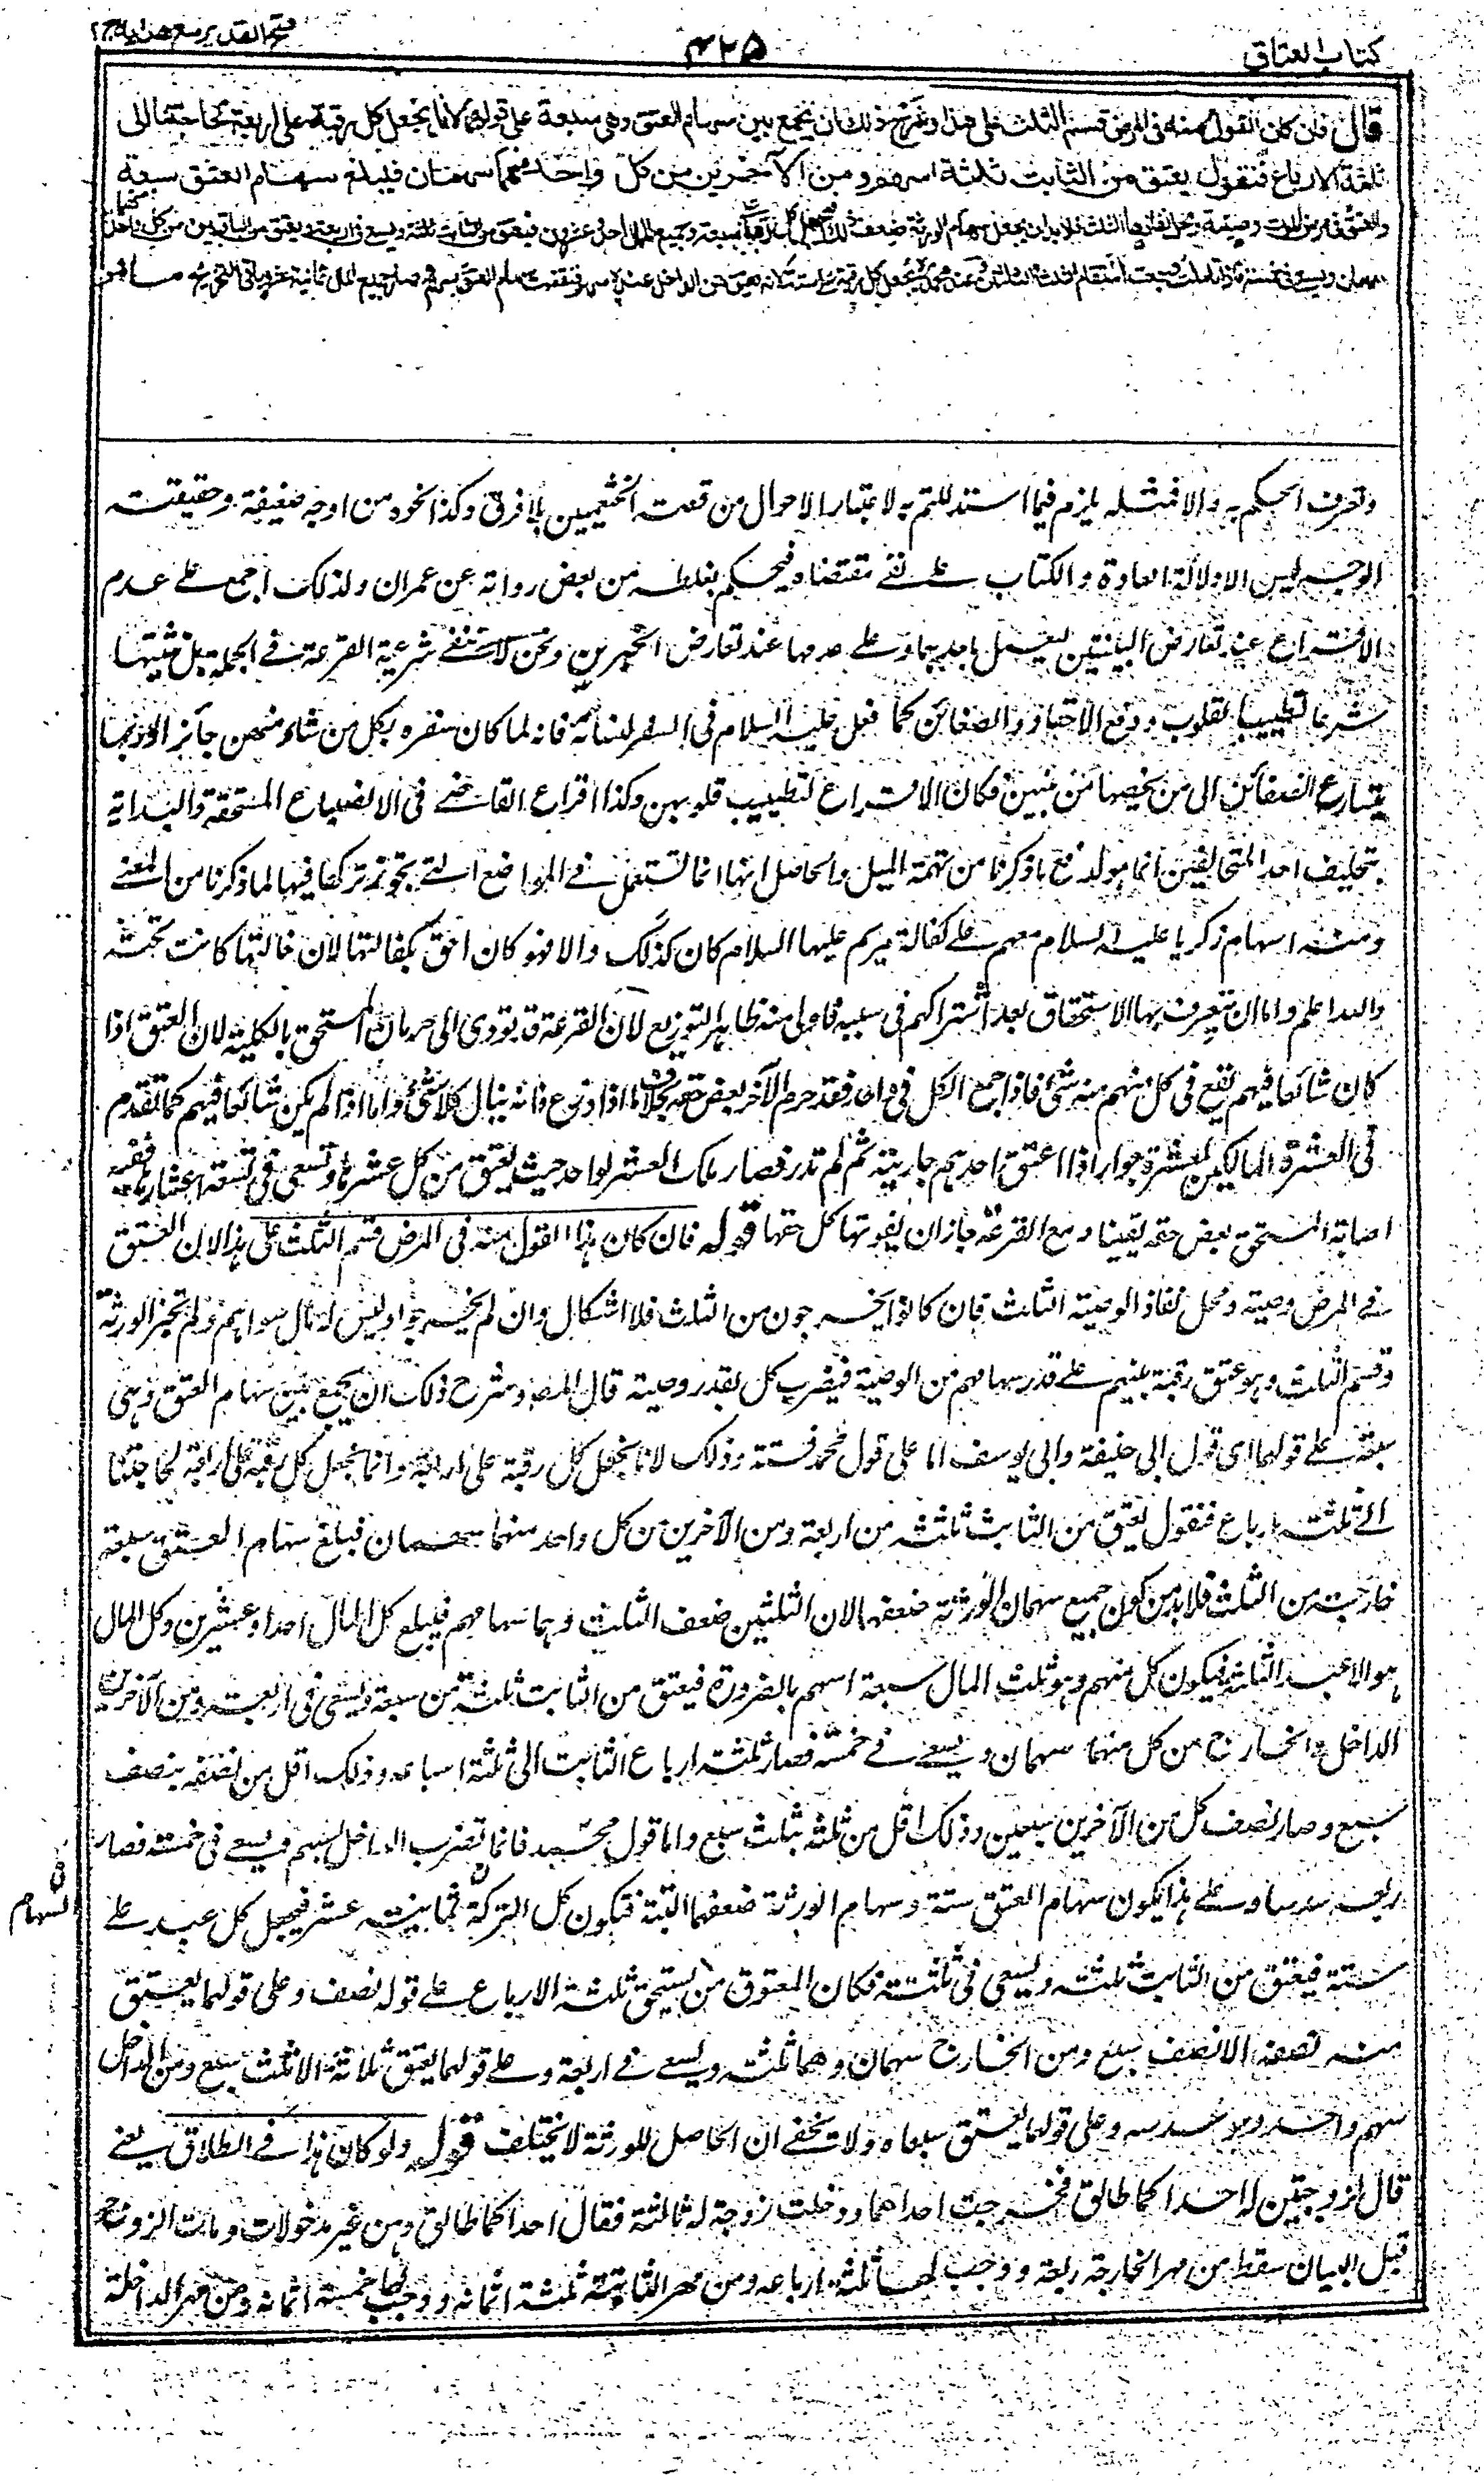 كتاب العتاق
٤٢٥
فتح القدير مع هدايه ج٢
قال فان كان القول منه فى المرض قسم الثلث على هذا وشرح ذلك ان يجمع بين سهام العتق وهى سبعة على قولهما لانا نجعل كل رقبة على اربعة لحاجتنا الى
ثلثة الارباع فنقول يعتق من الثابت ثلثة اسهم ومن الآخرين من كل واحد منهما سهمان فيبلغ سهام العتق سبعة
والعتق فى مرض الموت وصية ومحل نفاذها الثلث فلا بد ان يجعل سهام الورثة ضعف ذلك فيجعل كل رقبة على سبعة وجميع المال احد وعشرون فيعتق من الثابت ثلثة ويسعى فى اربعة ويعتق من الباقيين من كل واحد منهما
سهمان ويسعى فى خمسة فاذا تاملت وجمعت استقام الثلث والثلثان وعند محمد يجعل كل رقبة على ستة لانه يعتق من الداخل عنده سهم فنقصت سهام العتق بسهم وصار جميع المال ثمانية عشر وباقى التخريج ما مر
وتعرف الحكم به والا فمثله يلزم فيما استدللتم به لاعتبار الاحوال من قصة الخثعميين بلا فرق وكذا نحوه من اوجه ضعيفة وحقيقته
الوجه ليس الا دلالة العادة والكتاب على نفى مقتضاه فيحكم بغلطه من بعض رواته عن عمران ولذلك اجمع على عدم
الاقتراع عند تعارض البينتين ليعمل باحديهما وعلى عدمها عند تعارض الخبرين ونحن لا ننفى شرعية القرعة فى الجملة بل نثبتها
شرعا لتطييب القلوب ودفع الاحقاد والضغائن كما فعل عليه السلام فى السفر لنسائه فانه لما كان سفره بكل من شاء منهن جائز الا انه ربما
يتسارع الضغائن الى من يخصها من بينهن فكان الاقتراع لتطييب قلوبهن وكذا اقراع القاضى فى الانصباء المستحقة والبداية
بتحليف احد المتحالفين انما هو لدفع ما ذكرنا من تهمة الميل والحاصل انها انما تستعمل فى المواضع التى يجوز تركها فيها لما ذكرنا من المعنى
ومنه اسهام زكريا عليه السلام معهم على كفالة مريم عليها السلام كان كذلك والا فهو كان احق بكفالتها لان خالتها كانت تحته
والله اعلم واما ان تعرف بها الاستحقاق بعد اشتراكهم فى سببه فاولى منه ظاهر التوزيع لان القرعة قد تؤدى الى حرمان المستحق بالكلية لان العتق اذا
كان شائعا فيهم يقع فى كل منهم منه شئ فاذا جمع الكل فى واحد فقد حرم الآخر بعض حقه بخلاف ما اذا وزع فانه ينال كلا شئ واما اذا لم يكن شائعا فيهم كما تقدم
فى العشرة المالكين لعشرة جوار اذا اعتق احدهم جاريته ثم لم تدر فصار ملك العشر لواحد حيث يعتق من كل عشرها وتسعى فى تسعة اعشارها ففيه
اصابة المستحق بعض حقه يقينا ومع القرعة جاز ان يفوتها كل حقها قوله فان كان هذا القول منه فى المرض قسم الثلث على هذا لان العتق
فى المرض وصية ومحل نفاذ الوصية الثلث فان كانوا يخرجون من الثلث فلا اشكال وان لم يخرجوا وليس له مال سواهم ولم تجز الورثة
وقسم الثلث وهو عتق رقبة بينهم على قدر سهامهم من الوصية فيضرب كل بقدر وصيته قال المصـ وشرح ذلك ان يجمع بين سهام العتق وهى
سبعة على قولهما اى قول ابى حنيفة وابى يوسف اما على قول محمد فستة وذلك لانا نجعل كل رقبة على اربعة وانما نجعل كل رقبة على اربعة لحاجتنا
الى ثلثة ارباع فنقول يعتق من الثابث ثلثة من اربعة ومن الآخرين من كل واحد منهما سهمان فبلغ سهام العتق سبعة
خارجة من الثلث فلا بد من كون جميع سهمان الورثة ضعفها لان الثلثين ضعف الثلث وهما سهامهم فيبلغ كل المال احدا وعشرين وكل المال
هو الاعبد الثلثة فيكون كل منهم وهو ثلث المال سبعة اسهم بالضرورة فيعتق من الثابت ثلثة من سبعة ويسعى فى اربعة ومن الآخرين
الداخل والخارج من كل منهما سهمان ويسعى فى خمسة فصار ثلثة ارباع الثابت الى ثلثة اسباعه وذلك اقل من نصفه بنصف
سبع وصار نصف كل من الآخرين سبعين وذلك اقل من ثلثه بثلث سبع واما قول محمد فانما تضرب الداخل بسهم ويسعى فى خمسة فصار
ربعه سدسا وعلى هذا يكون سهام العتق ستة وسهام الورثة ضعفها البتة فتكون كل التركة ثمانية عشر فيجعل كل عبد على
السهام
ستة فيعتق من الثابت ثلثة ويسعى فى ثلثة فكان المعتوق من يستحق ثلثة الارباع على قوله نصف وعلى قولهما يعتق
منه نصفه الا نصف سبع ومن الخارج سهمان وهما ثلثه ويسعى فى اربعة وعلى قولهما يعتق ثلاثة الا ثلث سبع ومن الداخل
سهم واحد وهو سدسه وعلى قولهما يعتق سبعاه ولا يخفى ان الحاصل للورثة لا يختلف قوله ولو كان هذا فى الطلاق يعنى
قال لزوجتين له احداكما طالق فخرجت احداهما ودخلت زوجة له ثالثة فقال احداكما طالق وهن غير مدخولات ومات الزوج
قبل البيان سقط من مهر الخارجة ربعه ووجب لها ثلثة ارباعه ومن مهر الثابتة ثلثة اثمانه ووجب لها خمسة اثمانه ومن مهر الداخلة